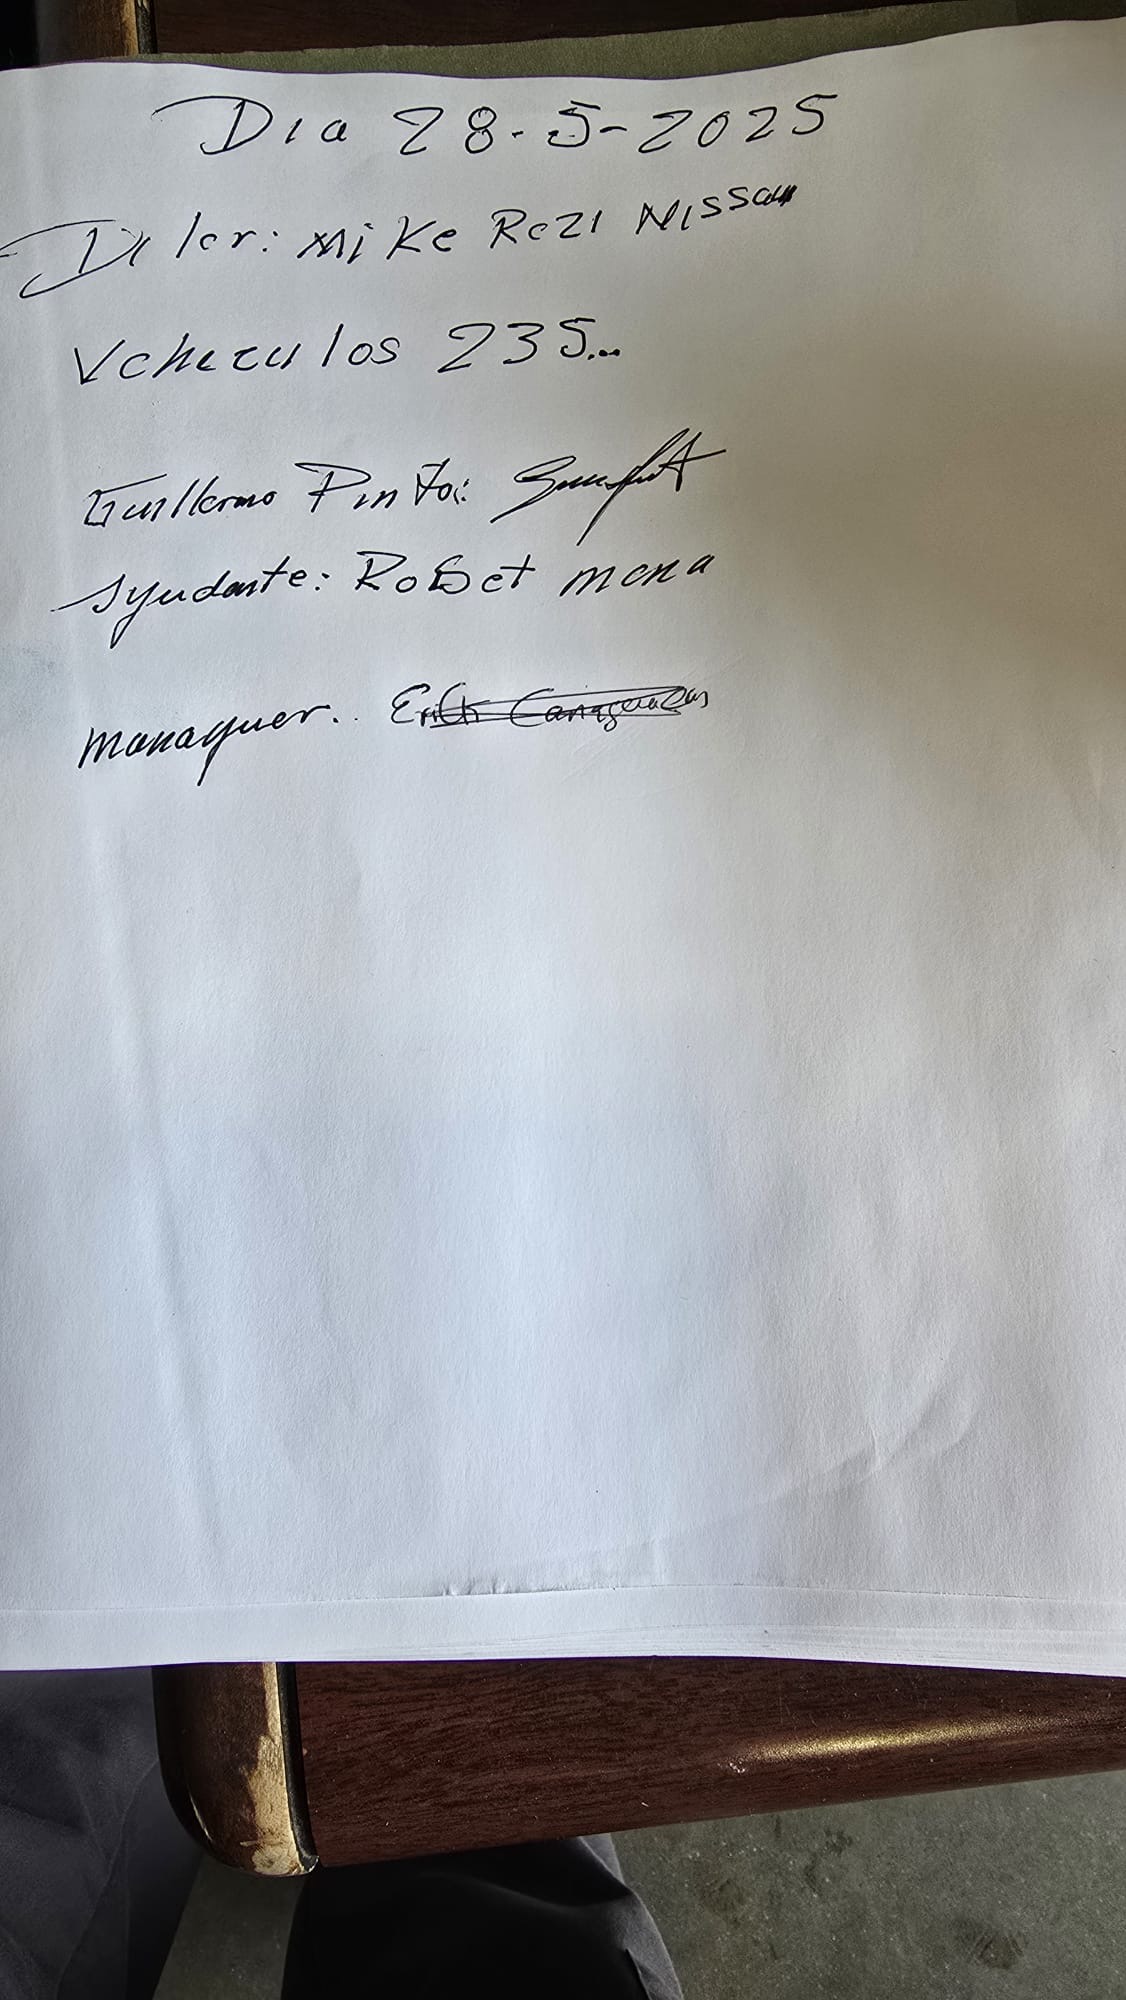 Dia 28-5-2025
Diler: Mike Rezi Nissan
Veheculos 235...
Guillermo Pinto:
Ayudante: Robet mena
managuer.. Erick